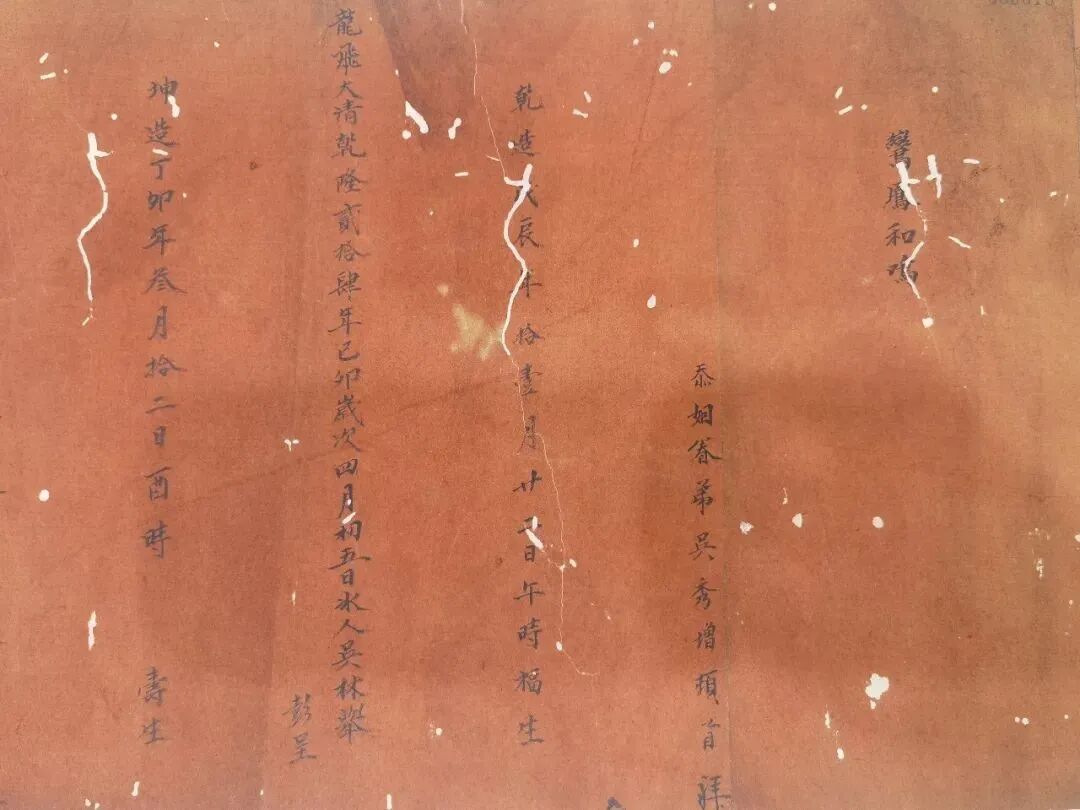 鸞鳳和鳴
忝姻眷弟吳秀增頓首拜
乾造戊辰年拾壹月廿二日午時福生
龍飛大清乾隆貳拾肆年己卯歲次四月初五日氷人吳林舉
彭呈
坤造丁卯年叁月拾二日酉時 壽生